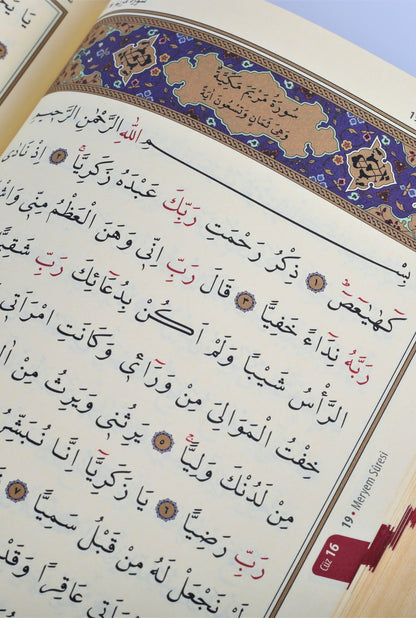 سُورَةُ مَرْيَمَ مَكِّيَّةٌ
وَهِيَ ثَمَانٍ وَتِسْعُونَ اٰيَةً
بِسْمِ اللّٰهِ الرَّحْمٰنِ الرَّحِيمِ
كٓهٰيٰعٓصٓ ۚ ١ ذِكْرُ رَحْمَتِ رَبِّكَ عَبْدَهُ زَكَرِيَّا ۚ ٢ اِذْ نَادٰى
رَبَّهُ نِدَٓاءً خَفِيًّا ٣ قَالَ رَبِّ اِنّ۪ي وَهَنَ الْعَظْمُ مِنّ۪ي
الرَّأْسُ شَيْبًا وَلَمْ اَكُنْ بِدُعَٓائِكَ رَبِّ شَقِيًّا
خِفْتُ الْمَوَالِيَ مِنْ وَرَٓاء۪ي وَكَانَتِ امْرَاَت۪ي
مِنْ لَدُنْكَ وَلِيًّا ۙ ٥ يَرِثُن۪ي وَيَرِثُ مِنْ
رَبِّ رَضِيًّا ٦ يَا زَكَرِيَّٓا اِنَّا نُبَشِّرُ
نَجْعَلْ لَهُ مِنْ قَبْلُ سَمِيًّا ٧
عَاقِرًا وَقَدْ
Cüz 16
19 • Meryem Sûresi